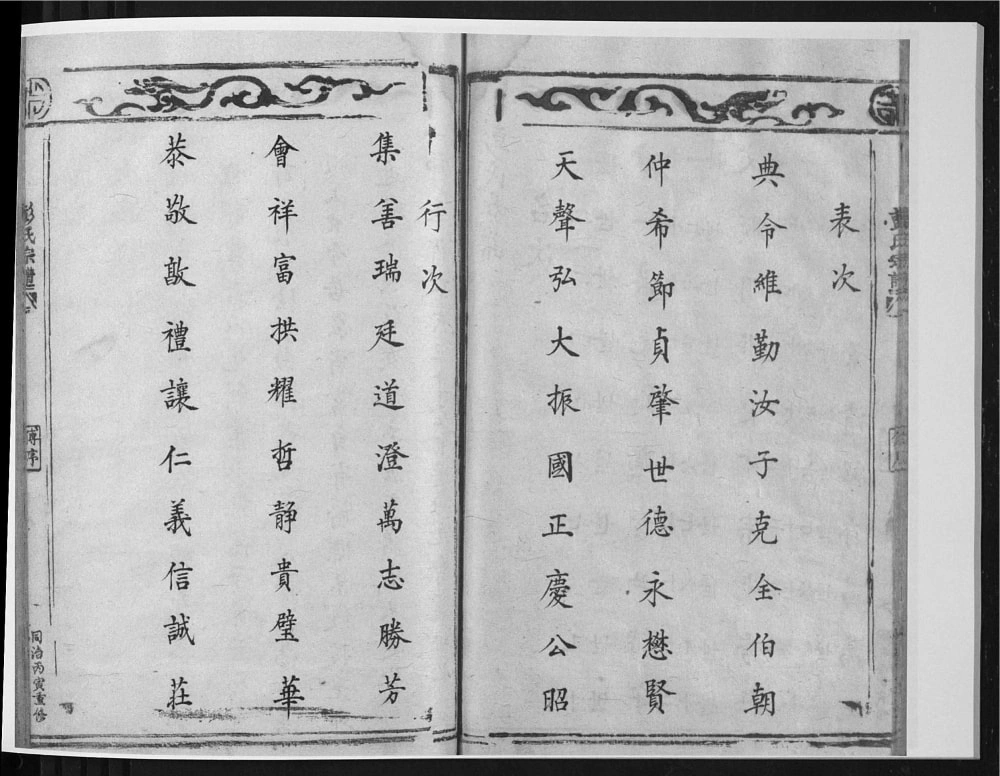 表次
典令維勤汝子克全伯朝
仲希節貞肇世德永懋賢
天聲弘大振國正慶公昭
行次
集善瑞廷道澄萬志勝芳
會祥富拱耀哲静貴璧華
恭敬敦禮讓仁義信誠莊
彭氏宗譜
同治丙寅重修